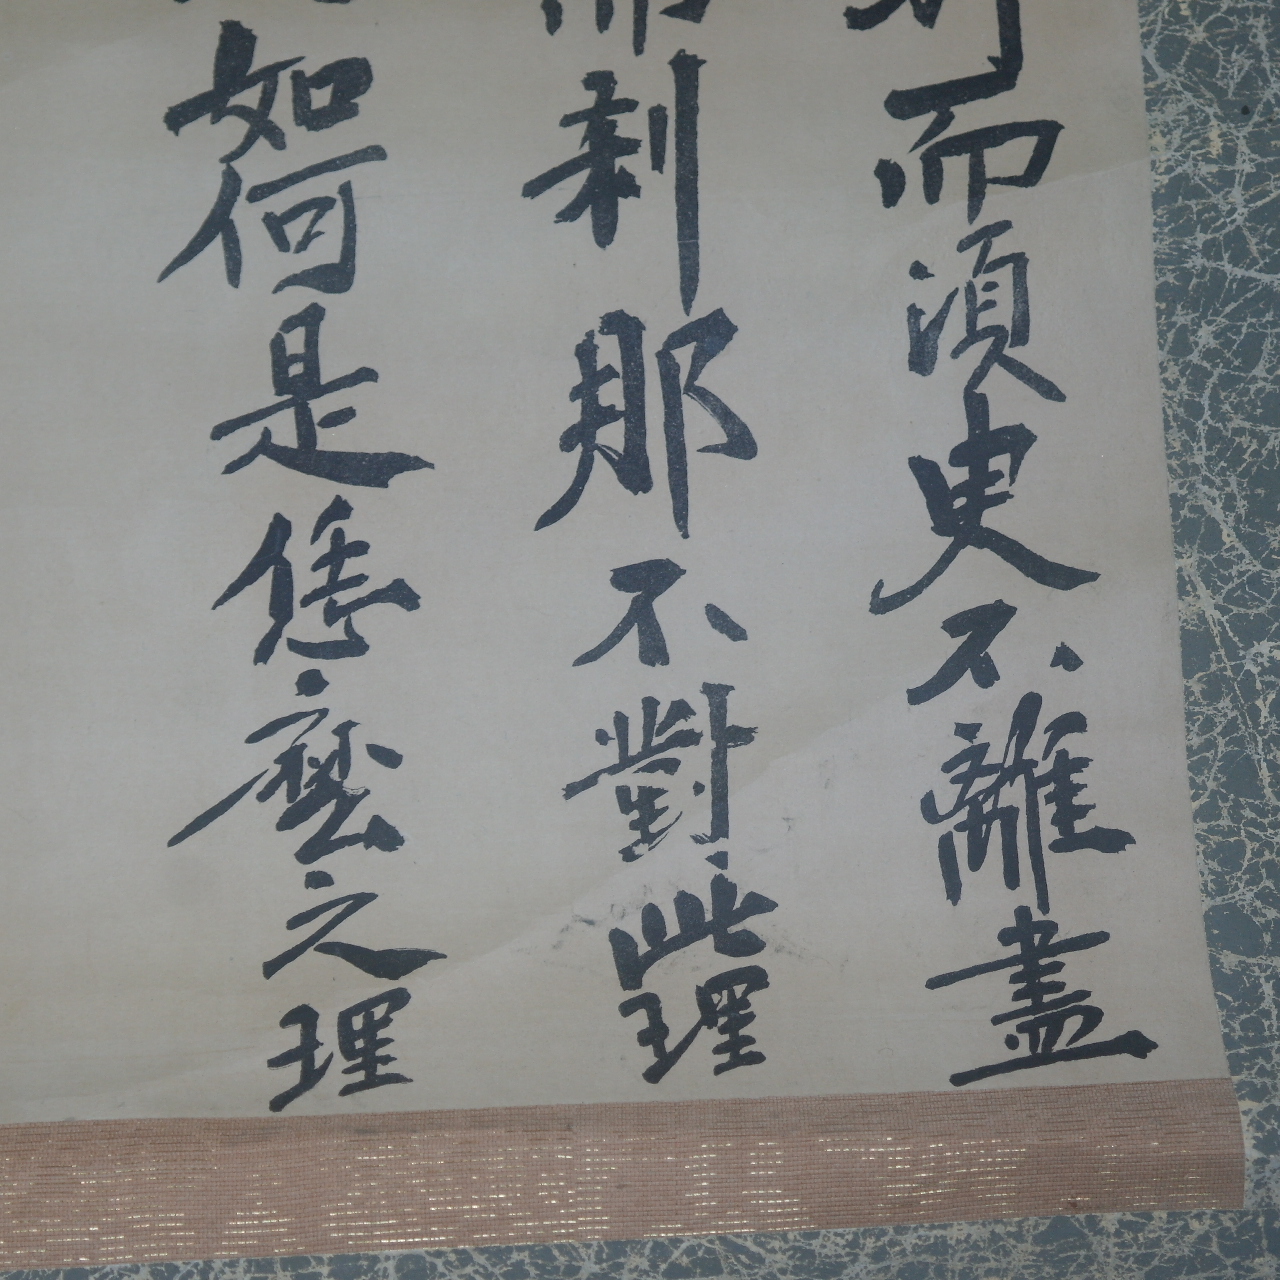 而須臾不離盡
刹那不對此理
如何是恁麼之理